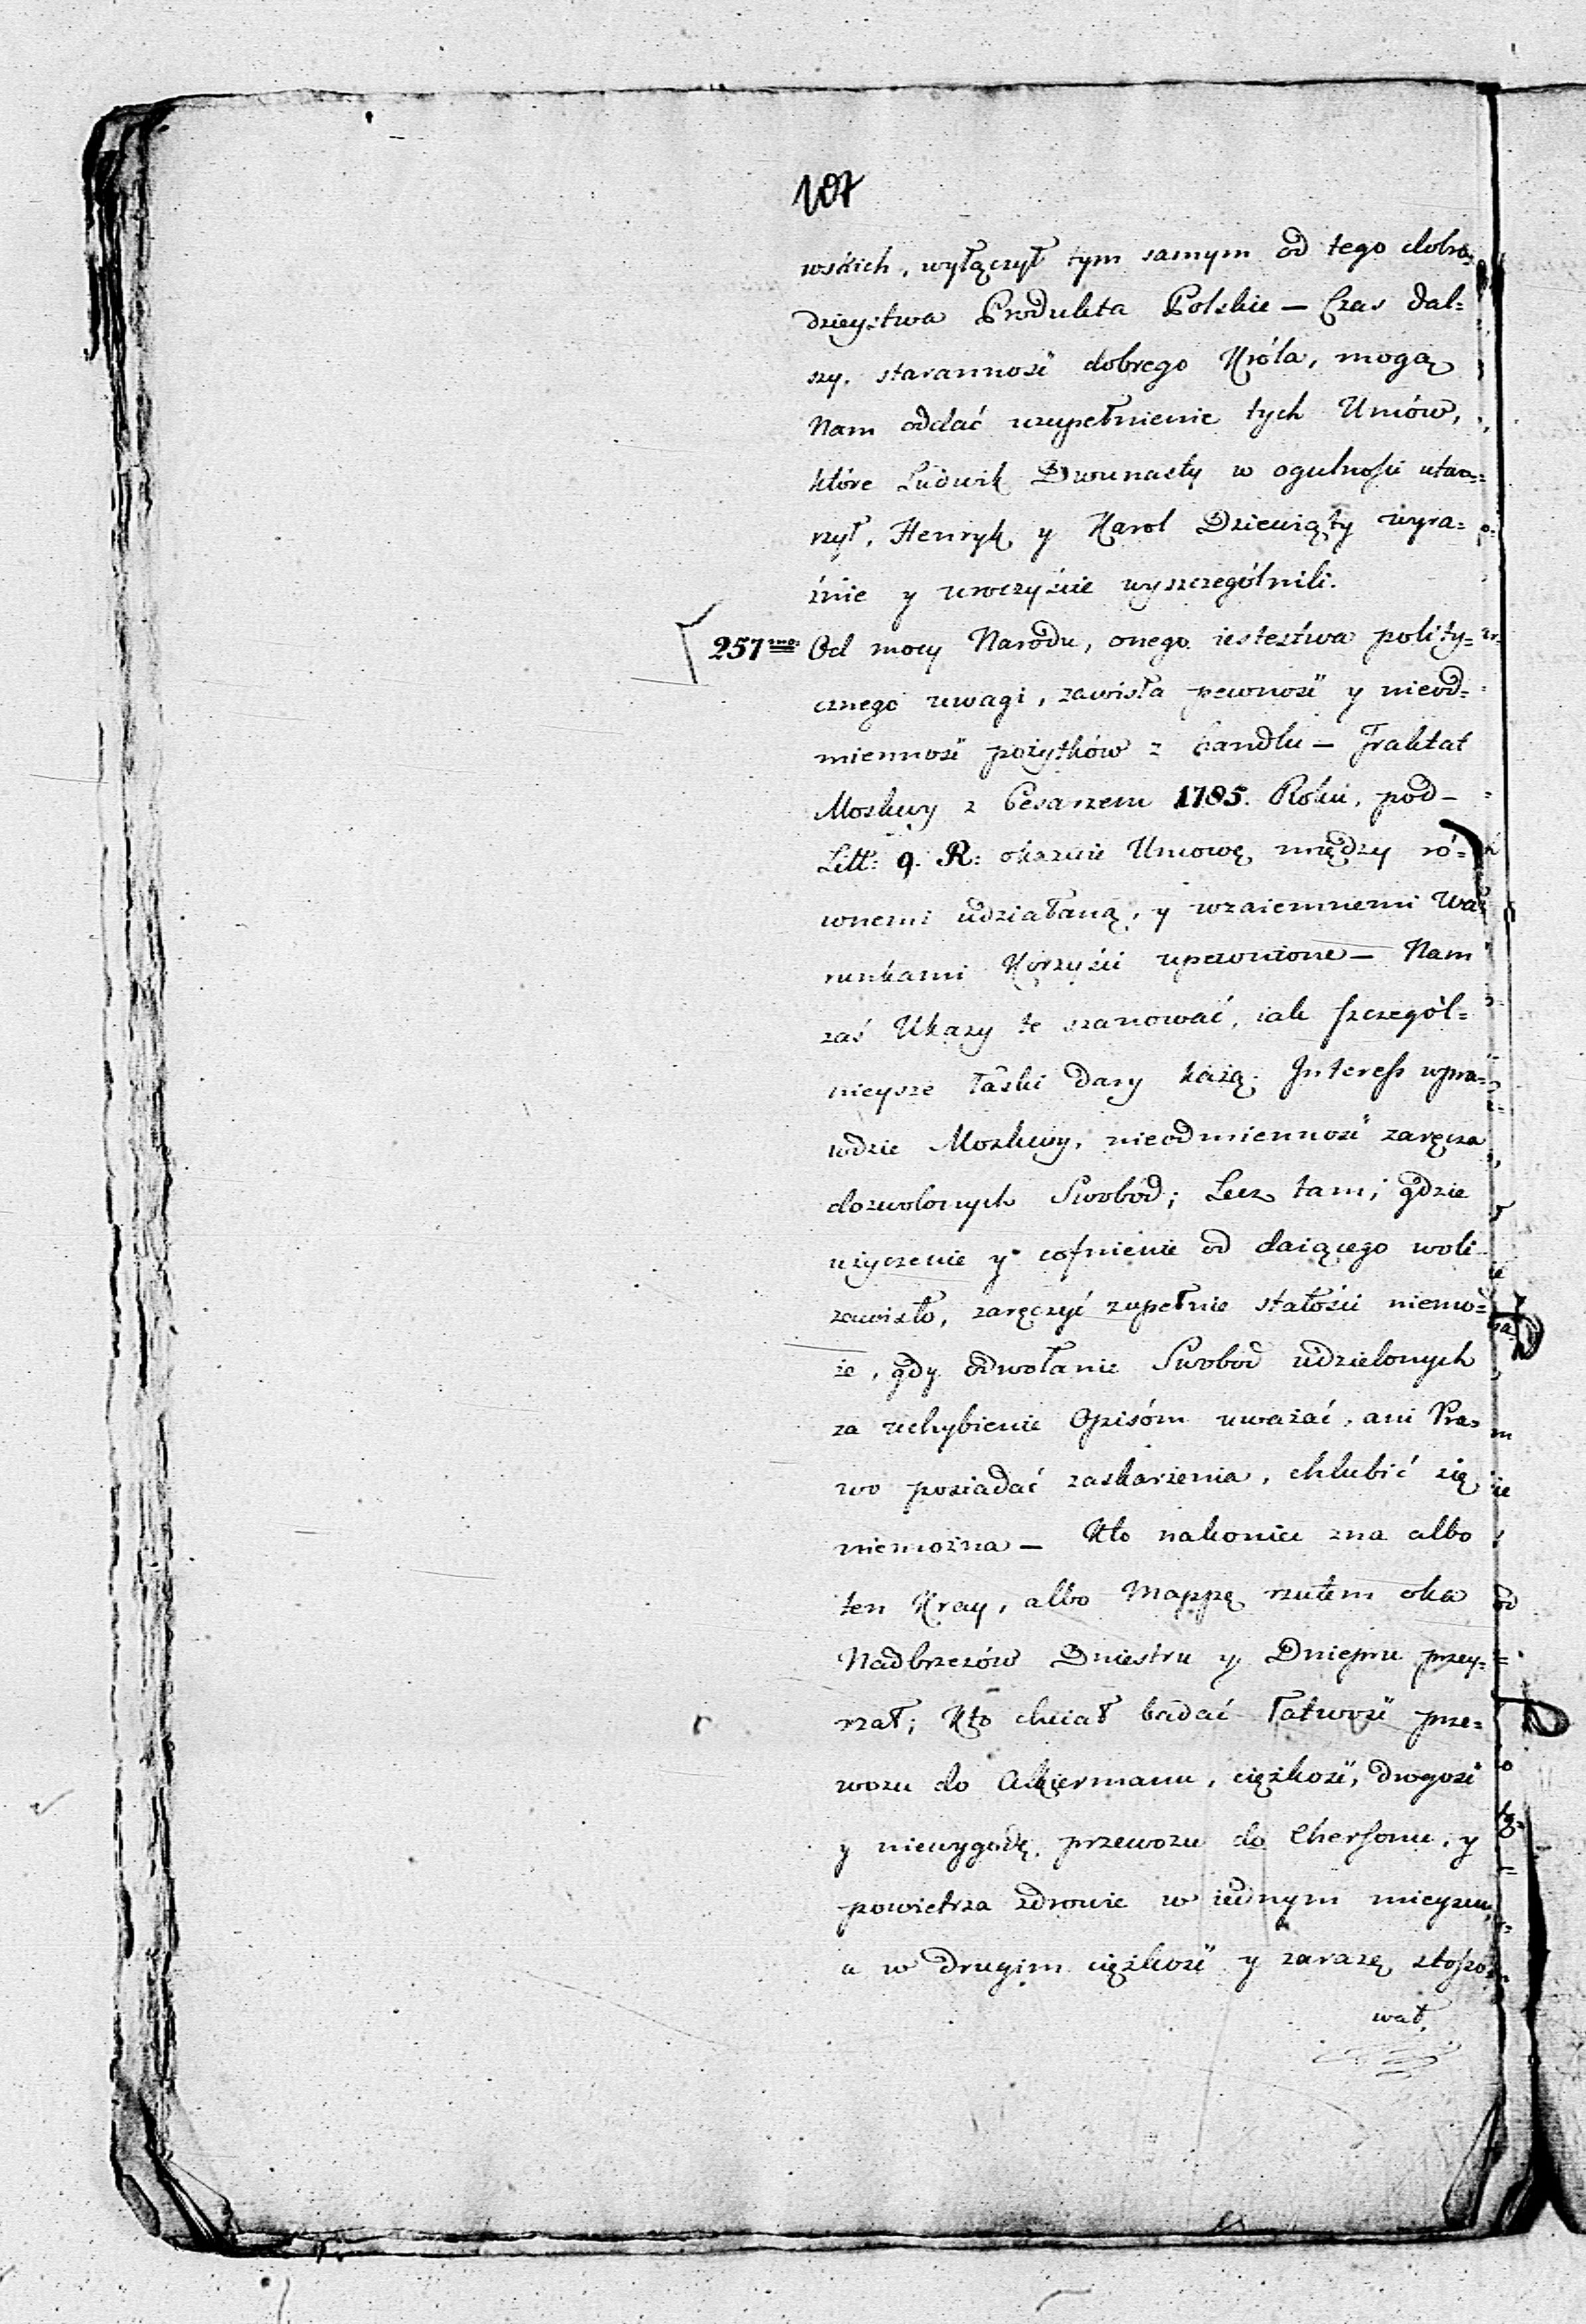 107
wskich, wyłączył tym samym od tego dobro=
dzieystwa Produkta Polskie — Czas dal=
szy, starannosć dobrego Króla, mogą
Nam oddać uzupełnienie tych Umów,
które Ludwik Dwunasty w ogulnosci utwo=
rzył, Henryk y Karol Dziewiąty wyra=
źnie y uroczyście wyszczególnili.
257mo. Od mocy Narodu, onego iestestwa polity=
cznego uwagi, zawisła pewność y nieod=
mienność pożytków z handlu — Traktat
Moskwy z Cesarzem 1785. Roku, pod—
Litt: q. R: okazuie Umowę między ró=
wnemi udziałaną, y wzaiemnemi Wa=
runkami Korzyści upewnione — Nam
zaś Ukazy te szanować, iak szczegól=
nieysze łaski dary każą. Interess wpra=
wdzie Moskwy, nieodmienność zaręcza
dozwolonych Swobód; Lecz tam, gdzie
użyczenie y cofnienie od daiącego woli
zawisło, zaręczyć zupełnie stałości niemo=
że, gdy odwołanie Swobod udzielonych
za uchybienie Opisóm uważać, ani Pra=
wo posiadać zaskarżenia, chlubić się
niemożna — Kto nakoniec zna albo
ten Kray, albo Mappę rzutem oka
Nadbrzeżów Dniestru y Dniepru przey=
rzał; Kto chciał badać łatwość prze=
wozu do Akiermanu, ciężkość, drogość
y niewygodę przewozu do Chersonu, y
powietrza zdrowie w iednym mieyscu,
a w drugim ciężkość y zarazę stoso=
wał,